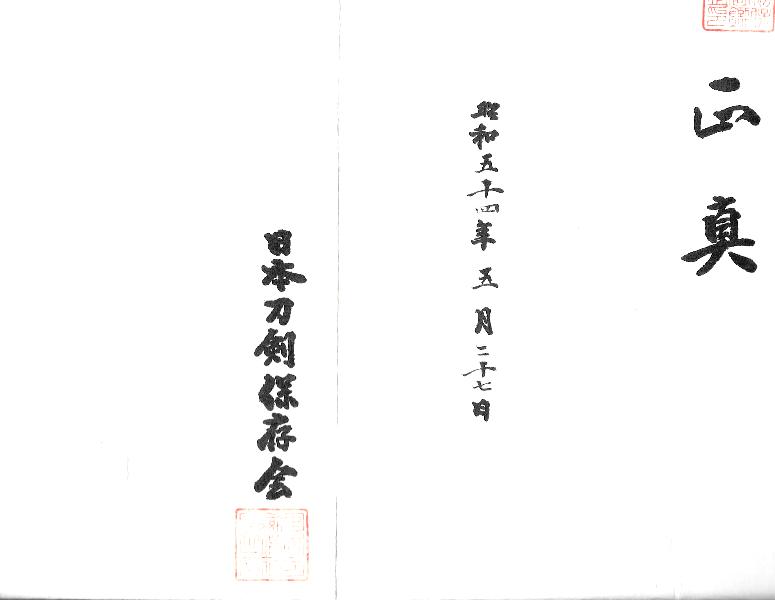 正真
昭和五十四年五月二十七日
日本刀剣保存会